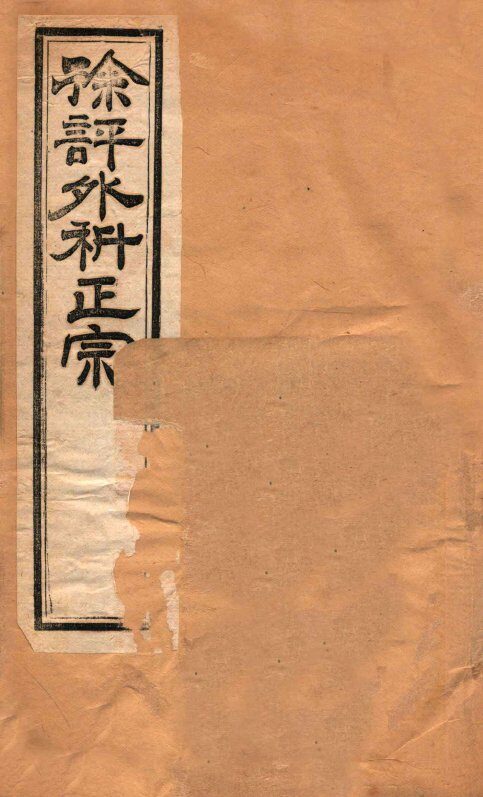 徐評外科正宗